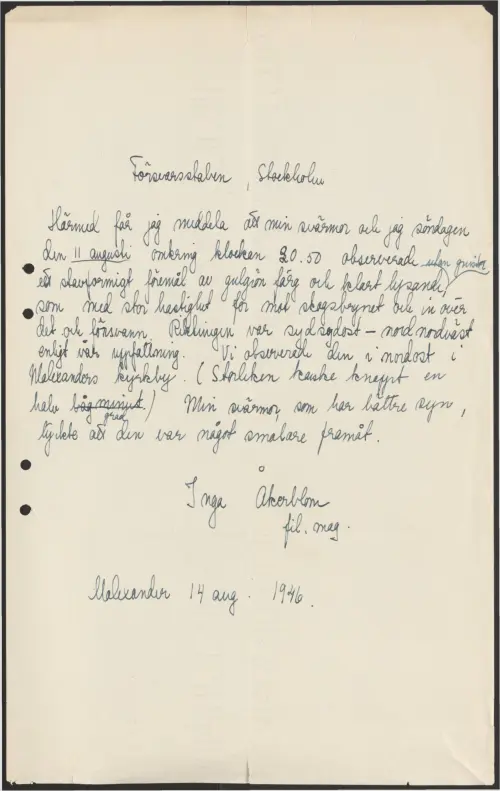 Försvarsstaben, Stockholm
Härmed får jag meddela att min svärmor och jag söndagen
den 11 augusti omkring klockan 20.50 observerade utan gnistor
ett stavformigt föremål av gulgrön färg och klart lysande,
som med stor hastighet för mot skogsbrynet och in över
det och försvann. Riktningen var sydsydost – nordnordväst
enligt vår uppfattning. Vi observerade den i nordost i
Malexanders kyrkby. (Storleken kanske knappt en
halv bågminut grad.) Min svärmor, som har bättre syn,
tyckte att den var något smalare framåt.
Inga Åkerblom
fil. mag.
Malexander 14 aug. 1946.